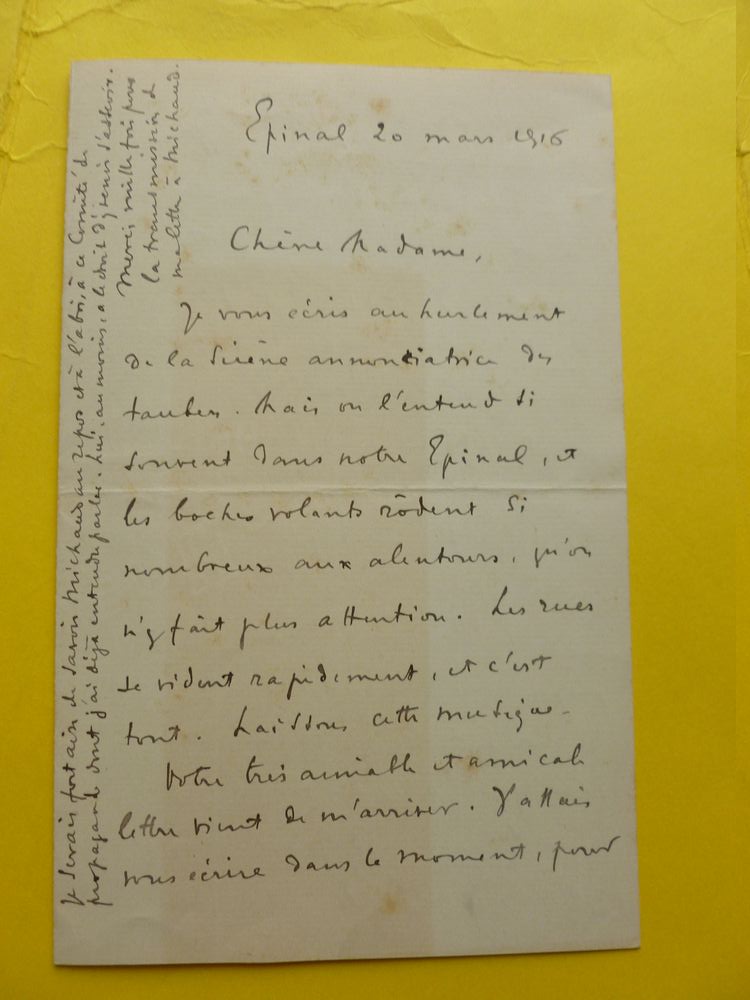 Epinal 20 mars 1916
Chère Madame,
Je vous écris au hurlement
de la Sirène annonciatrice des
taubes. Mais on l'entend si
souvent dans notre Epinal, et
les boches volants rôdent si
nombreux aux alentours, qu'on
n'y fait plus attention. Les rues
se vident rapidement, et c'est
tout. Laissons cette musique.
Votre très aimable et amicale
lettre vient de m'arriver. J'allais
vous écrire dans le moment, pour
Je serais fort aise de savoir Michaud au repos et à l'abri, à ce Comité de
propagande dont j'ai déjà entendu parler. Lui, au moins, a le droit d'y venir s'asseoir.
Merci mille fois pour
la transmission de
ma lettre à Michaud.